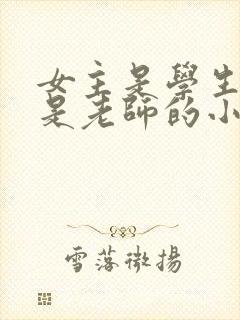 女主是學生
是老師的小
雪落微揚